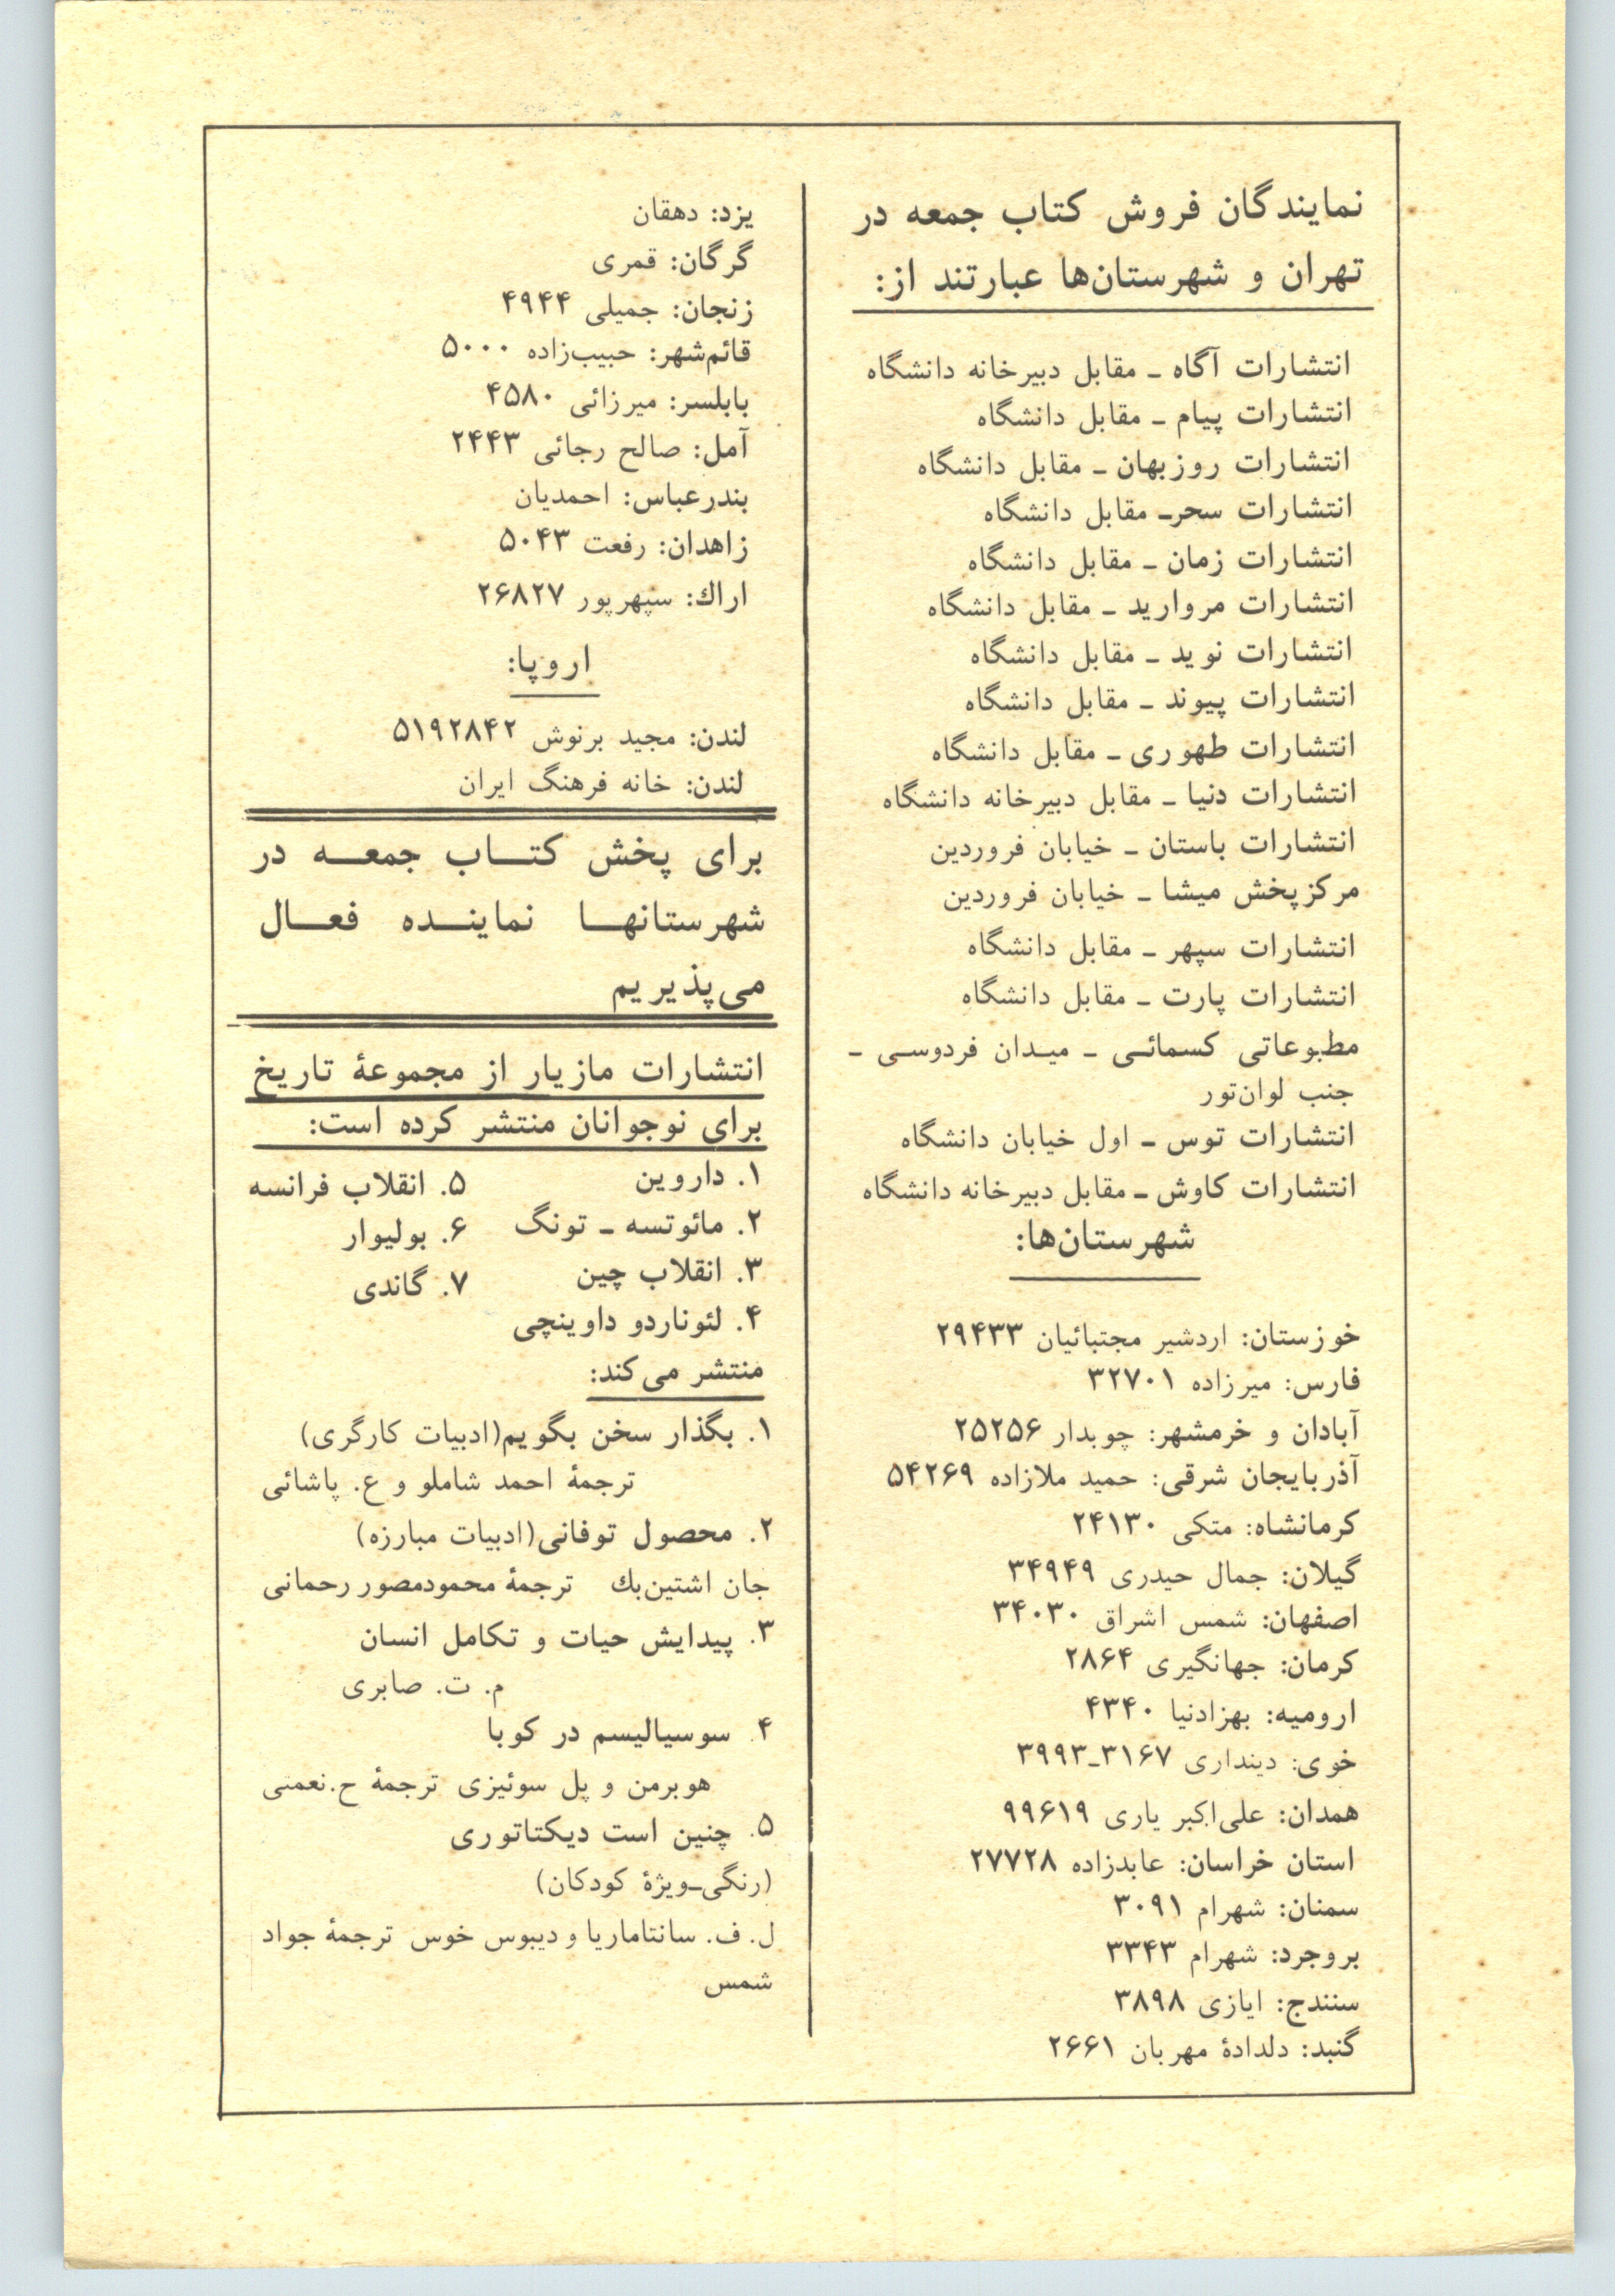 نمایندگان فروش کتاب جمعه در
تهران و شهرستان‌ها عبارتند از:
انتشارات آگاه ـ مقابل دبیرخانه دانشگاه
انتشارات پیام ـ مقابل دانشگاه
انتشارات روزبهان ـ مقابل دانشگاه
انتشارات سحرـ مقابل دانشگاه
انتشارات زمان ـ مقابل دانشگاه
انتشارات مروارید ـ مقابل دانشگاه
انتشارات نوید ـ مقابل دانشگاه
انتشارات پیوند ـ مقابل دانشگاه
انتشارات طهوری ـ مقابل دانشگاه
انتشارات دنیا ـ مقابل دبیرخانه دانشگاه
انتشارات باستان ـ خیابان فروردین
مرکزپخش میشا ـ خیابان فروردین
انتشارات سپهر ـ مقابل دانشگاه
انتشارات پارت ـ مقابل دانشگاه
مطبوعاتی کسمائی ـ میدان فردوسی ـ
جنب لوان‌تور
انتشارات توس ـ اول خیابان دانشگاه
انتشارات کاوش ـ مقابل دبیرخانه دانشگاه
شهرستان‌ها:
خوزستان: اردشیر مجتبائیان ۲۹۴۳۳
فارس: میرزاده ۳۲۷۰۱
آبادان و خرمشهر: چوبدار ۲۵۲۵۶
آذربایجان شرقی: حمید ملازاده ۵۴۲۶۹
کرمانشاه: متکی ۲۴۱۳۰
گیلان: جمال حیدری ۳۴۹۴۹
اصفهان: شمس اشراق ۳۴۰۳۰
کرمان: جهانگیری ۲۸۶۴
ارومیه: بهزادنیا ۴۳۴۰
خوی: دینداری ۳۱۶۷ـ۳۹۹۳
همدان: علی‌اکبر یاری ۹۹۶۱۹
استان خراسان: عابدزاده ۲۷۷۲۸
سمنان: شهرام ۳۰۹۱
بروجرد: شهرام ۳۳۴۳
سنندج: ایازی ۳۸۹۸
گنبد: دلدادهٔ مهربان ۲۶۶۱
یزد: دهقان
گرگان: قمری
زنجان: جمیلی ۴۹۴۴
قائم‌شهر: حبیب‌زاده ۵۰۰۰
بابلسر: میرزائی ۴۵۸۰
آمل: صالح رجائی ۲۴۴۳
بندرعباس: احمدیان
زاهدان: رفعت ۵۰۴۳
اراك: سپهرپور ۲۶۸۲۷
اروپا:
لندن: مجید برنوش ۵۱۹۲۸۴۲
لندن: خانه فرهنگ ایران
برای پخش کتاب جمعه در
شهرستانها نماینده فعال
می‌پذیریم
انتشارات مازیار از مجموعهٔ تاریخ
برای نوجوانان منتشر کرده است:
۱. داروین
۲. مائوتسه ـ تونگ
۳. انقلاب چین
۴. لئوناردو داوینچی
۵. انقلاب فرانسه
۶. بولیوار
۷. گاندی
منتشر می‌کند:
۱. بگذار سخن بگویم(ادبیات کارگری)
ترجمهٔ احمد شاملو و ع. پاشائی
۲. محصول توفانی(ادبیات مبارزه)
جان اشتین‌بك ترجمهٔ محمودمصور رحمانی
۳. پیدایش حیات و تکامل انسان
م. ت. صابری
۴. سوسیالیسم در کوبا
هوبرمن و پل سوئیزی ترجمهٔ ح.نعمتی
۵. چنین است دیکتاتوری
(رنگی‌ـویژهٔ کودکان)
ل. ف. سانتاماریا و دیبوس خوس ترجمهٔ جواد
شمس